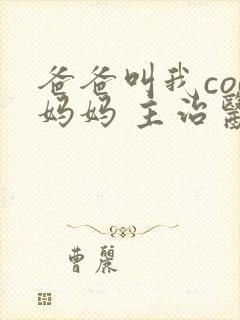 爸爸叫我co
妈妈 主治醫
曹麗